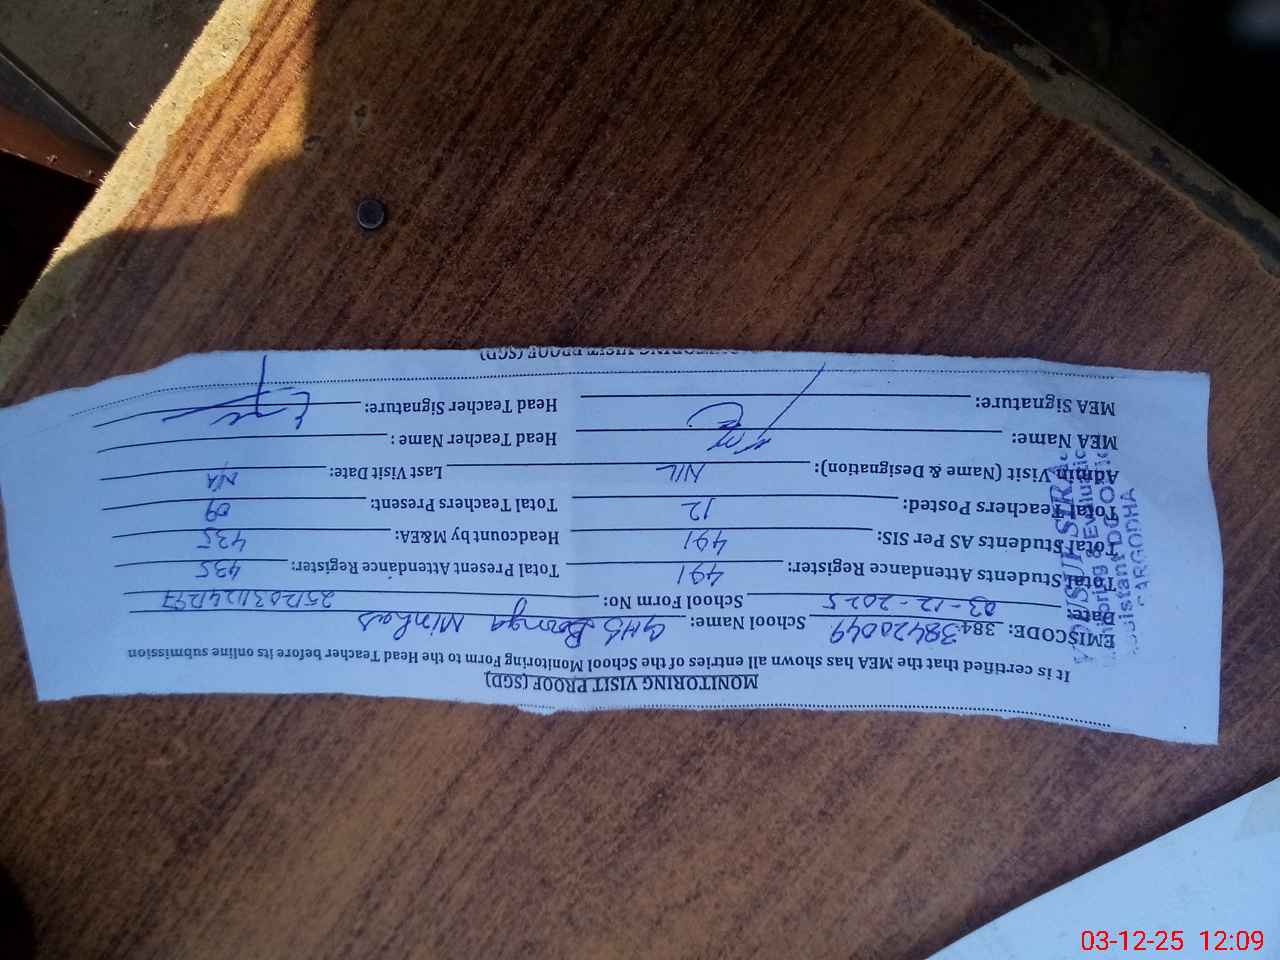 MONITORING VISIT PROOF (SGD)
It is certified that the MEA has shown all entries of the School Monitoring Form to the Head Teacher before its online submission
EMISCODE: 384 38420049 School Name: GHS Boonga Minhas
Date: 03-12-2025 School Form No:
Total Students Attendance Register: 491 Total Present Attendance Register: 435
Total Students AS Per SIS: 491 Headcount by M&EA: 435
Total Teachers Posted: 12 Total Teachers Present: 09
Admin Visit (Name & Designation): NIL Last Visit Date: N/A
MEA Name: Head Teacher Name :
MEA Signature: Head Teacher Signature:
MONITORING VISIT PROOF (SGD)
SARGODHA
03-12-25 12:09